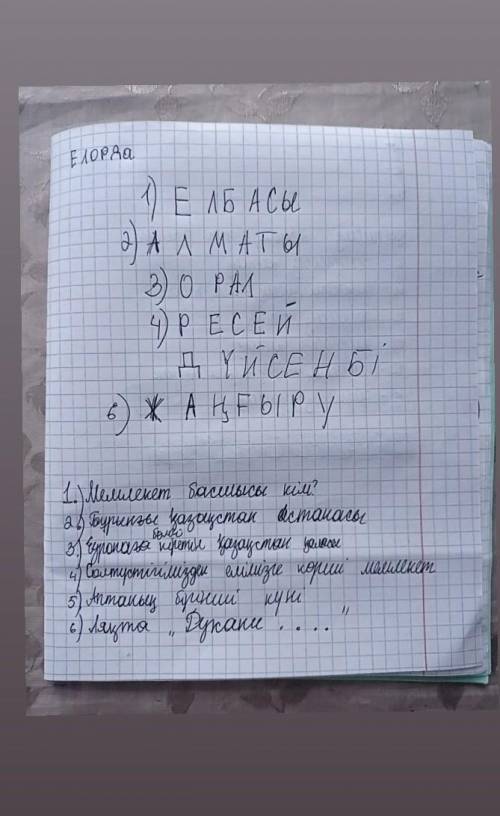 ЕЛОРДа
1) ЕЛБАСЫ
2) АЛМАТЫ
3) ОРАЛ
4) РЕСЕЙ
ДҮЙСЕНБІ
6) ЖАҢҒЫРУ
1.) Мемлекет басшысы кім?
2) Бұрынғы қазақстан астанасы
3) Еуропаға кіретін қазақстан қаласы
4) Солтүстігімізден елімізге көрші мемлекет
5) Аптаның бірінші күні
6) Ляқта „ Рухани .... "